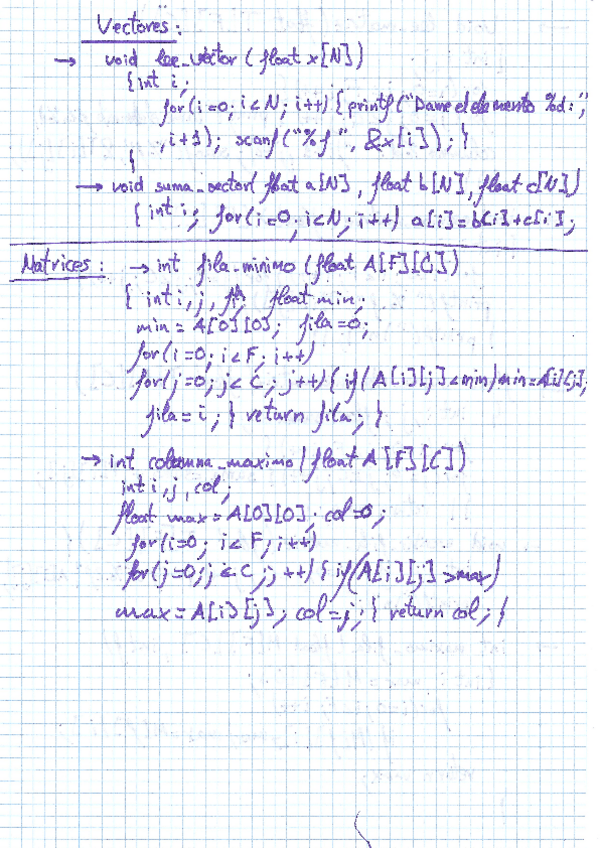 Vectores:
→ void lee_vector (float x[N])
{int i;
for(i=0; i<N; i++) {printf("Dame el elemento %d:",
,i+1); scanf("%f", &x[i]); }
}
→ void suma_vector( float a[N], float b[N], float c[N])
{ int i; for(i=0; i<N; i++) a[i]=b[i]+c[i];
Matrices: → int fila_minimo (float A[F][C])
{ int i, j, float min;
min = A[0][0]; fila=0;
for(i=0; i<F; i++)
for(j=0; j<C; j++) { if(A[i][j]<min) min=A[i][j];
fila=i; } return fila; }
→ int columna_maximo (float A[F][C])
int i, j, col;
float max = A[0][0]; col=0;
for(i=0; i<F; i++)
for(j=0; j<C; j++) { if(A[i][j]>max)
max=A[i][j]; col=j; } return col; }